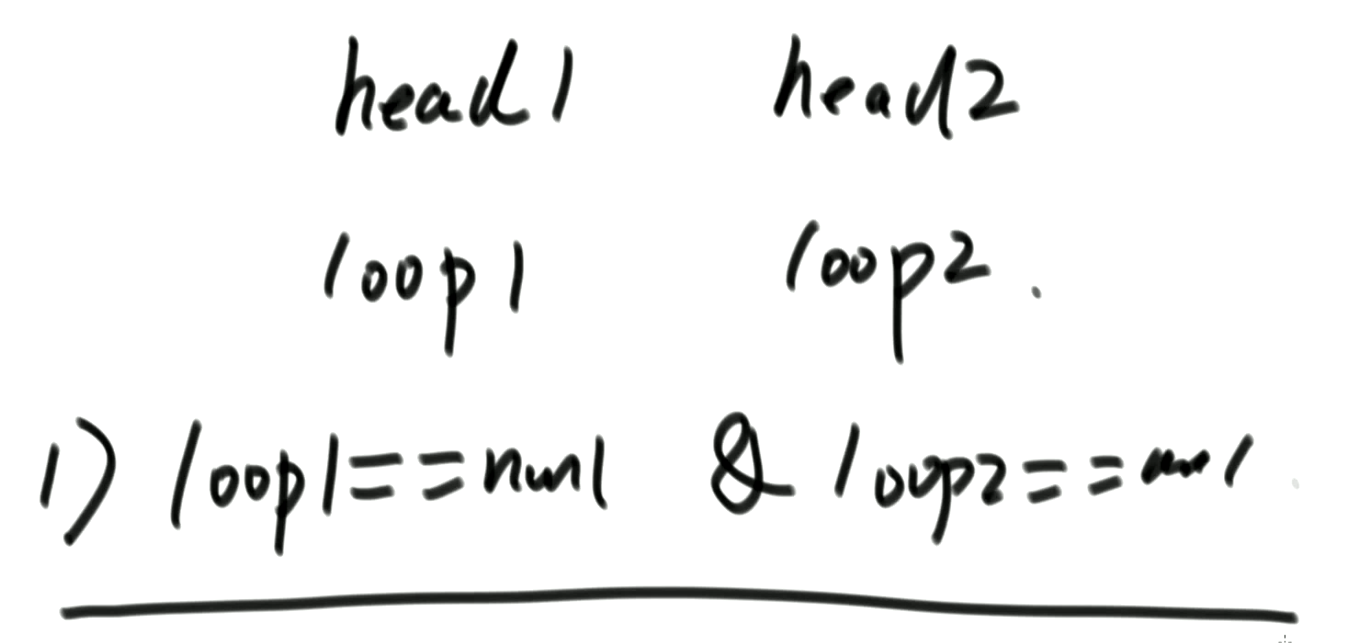 head1 head2
loop1 loop2.
1) loop1==null & loop2==null